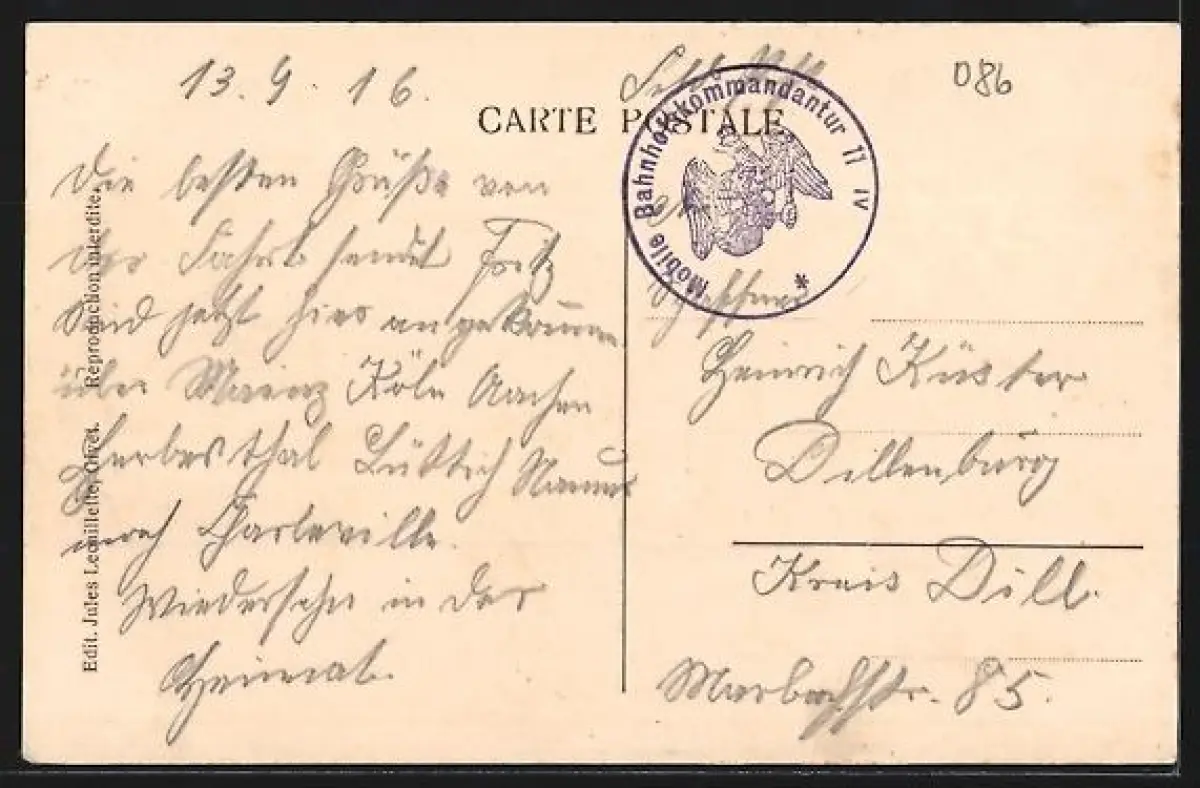 13. 9. 16.
086
CARTE POSTALE
Mobile Bahnhofskommandantur 11 IV *
Die besten Grüße von
der Fahrt sendet Fritz
Sind jetzt hier angekommen
über Mainz Köln Aachen
Herbesthal Lüttich Namur
nach Charleville.
Wiedersehn in der
Heimat.
Schaffner
Heinrich Küster
Dillenburg
Kreis Dill.
Marbachstr. 85.
Edit. Jules Lecaillette, Givet. Reproduction interdite.